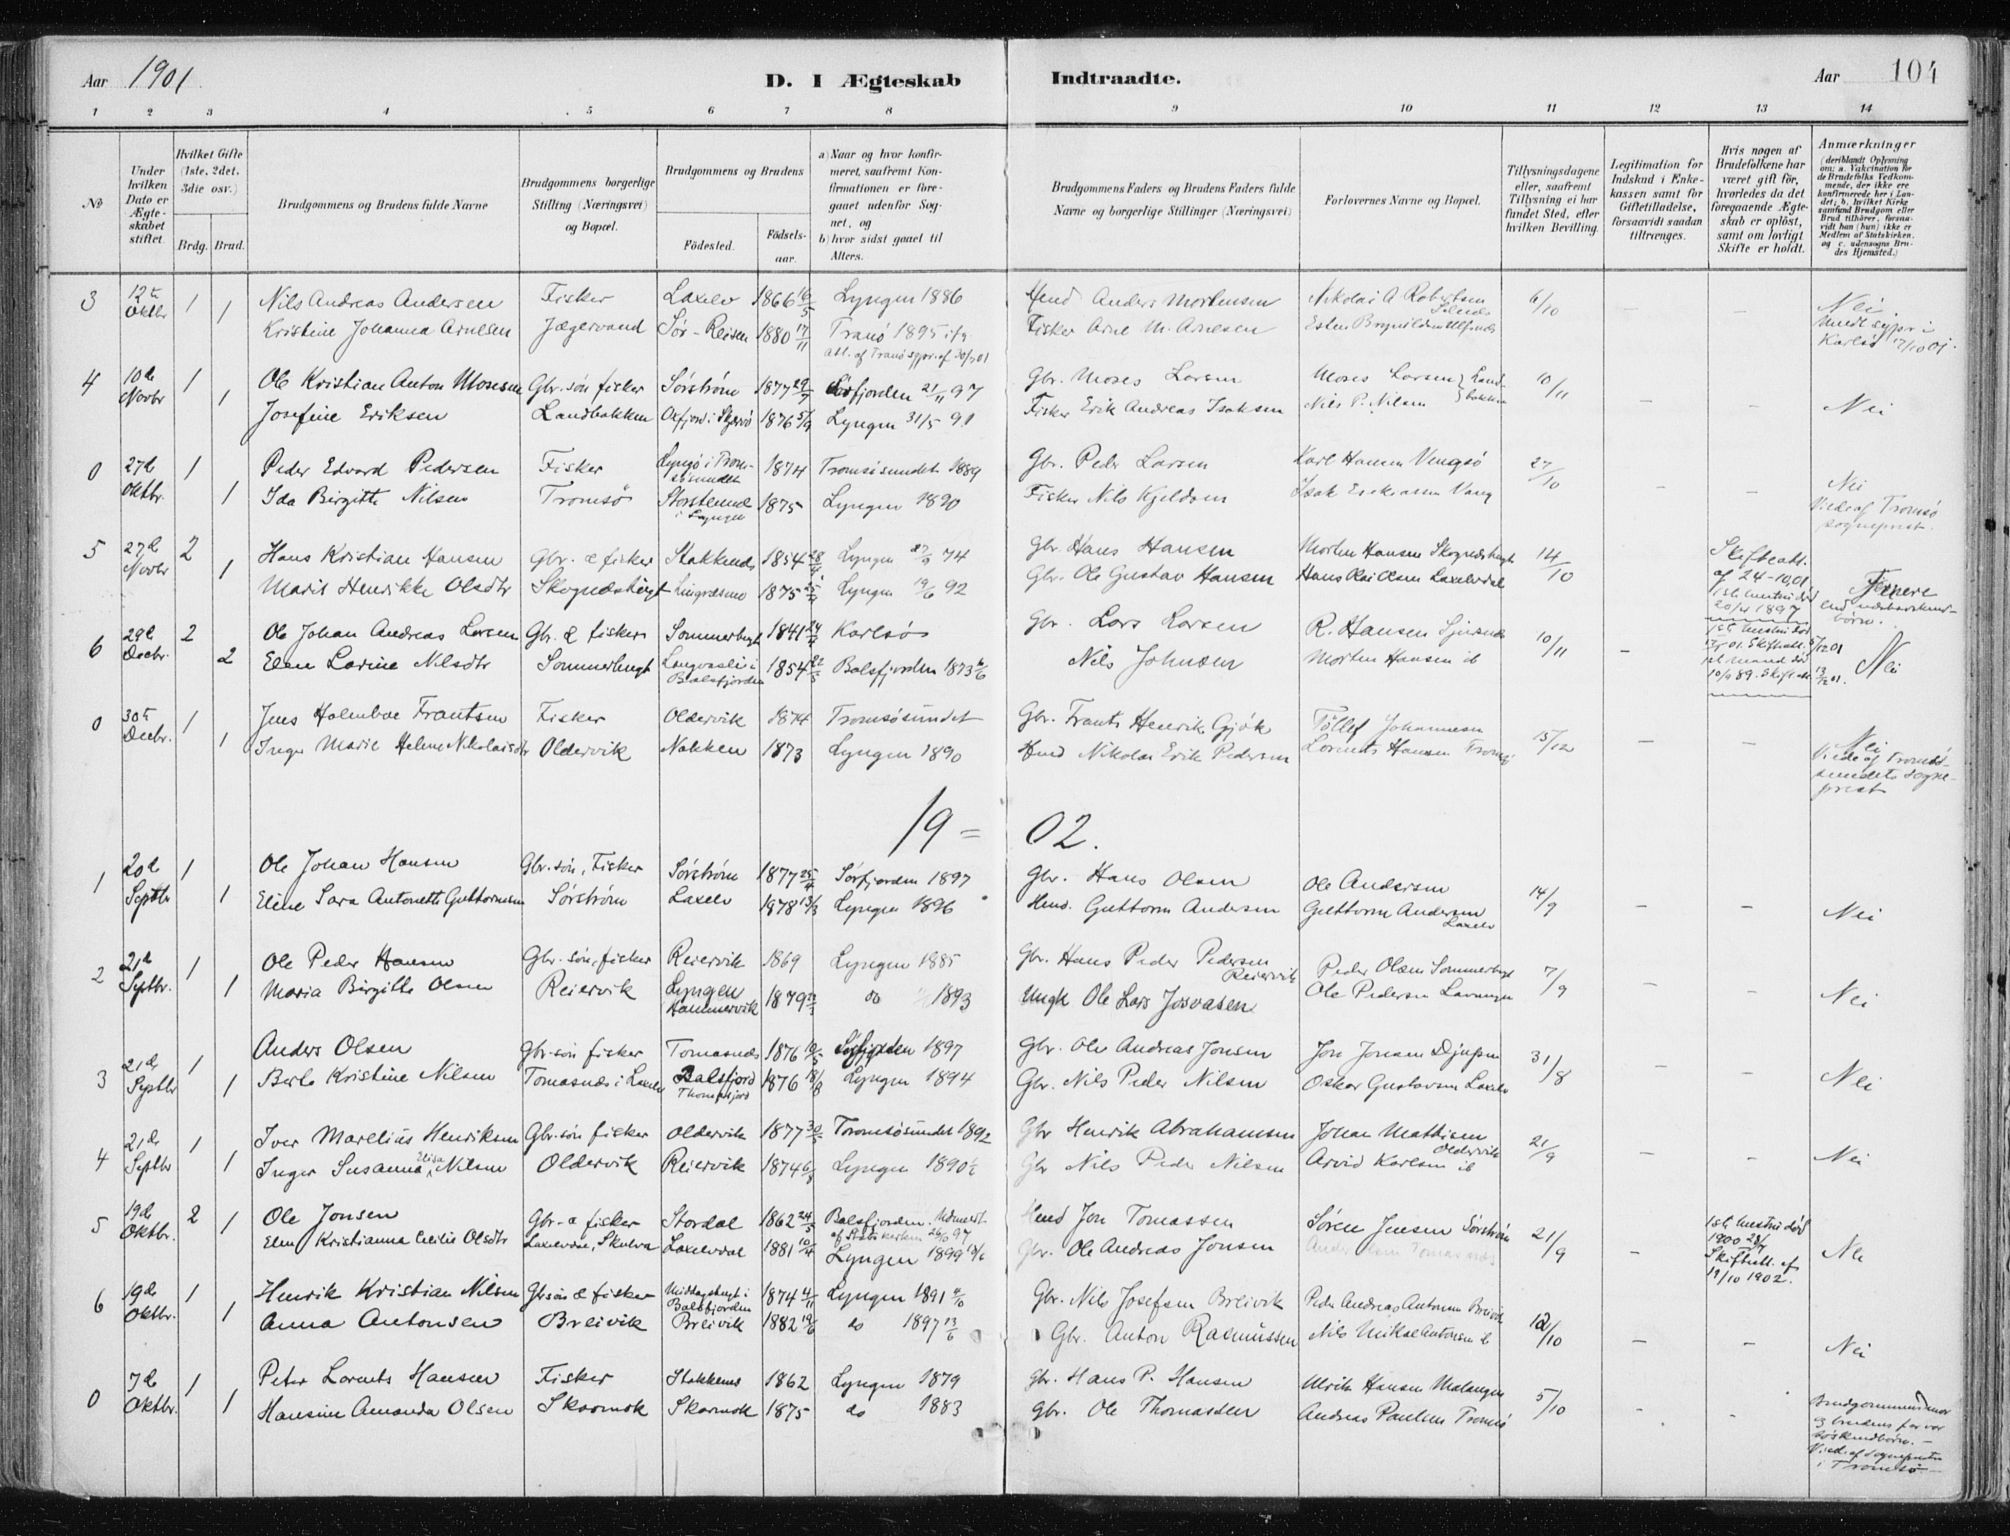 Aar 1901
D. I Ægteskab Indtraadte.
Aar 104
1 2 3 4 5 6 7 8 9 10 11 12 13 14
No
Under hvilken Dato er Ægteskabet stiftet.
Hvilket Gifte (1ste, 2det, 3die osv.)
Brdg. Brud.
Brudgommens og Brudens fulde Navne
Brudgommens borgerlige Stilling (Næringsvei) og Bopæl.
Brudgommens og Brudens
Fødested. Fødselsaar.
a) Naar og hvor konfirmeret, saafremt Konfirmationen er foregaaet udenfor Sognet, og
b) hvor sidst gaaet til Alters.
Brudgommens Faders og Brudens Faders fulde Navne og borgerlige Stillinger (Næringsvei)
Forlovernes Navne og Bopæl.
Tillysningsdagene eller, saafremt Tillysning ei har fundet Sted, efter hvilken Bevilling.
Legitimation for Indskud i Enkekassen samt for Giftetilladelse, forsaavidt saadan tiltrænges.
Hvis nogen af Brudefolkene har været gift før, hvorledes da det foregaaende Ægteskab er opløst, samt om lovligt Skifte er holdt.
Anmærkninger (deriblandt Oplysning om: a. Vakcination for de Brudefolks Vedkommende, der ikke ere konfirmerede her i Landet; b. hvilket Kirkesamfund Brudgom eller Brud tilhører, forsaavidt han (hun) ikke er Medlem af Statskirken, og c. udensogns Brudes Hjemsted.)
3 12te Oktbr 1 Nils Andreas Andersen Fisker Laxelv 1866 16/5 Lyngen 1886 Anders Mortensen Nikolai A Robertsen 6/10 – – Nei.
1 Kristine Johanna Arnesen Jægervand Sør-Reisen 1880 17/11 Tranø 1895 Fisker Arne M. Arnesen
att. af Tranø sgpr. af Karlsø 17/10 01.
4 10de Novbr 1 Ole Kristian Anton Mosesen Gbr. søn fisker Sørstrøm 1877 29/7 Sørfjorden 21/11 97 Gbr. Moses Larsen Moses Larsen 10/11
1 Josefine Eriksen Landbakken Oxfjord i Skjervø 1876 5/9 Lyngen 31/5 91 Fisker Erik Andreas Isaksen Nils P. Nilsen – – Nei
0 27de Oktbr. 1 Peder Edvard Pedersen Fisker i Tromsøsundet 1874 Tromsøsundet 1889 Gbr. Peder Larsen Karl Hansen Vengsø 27/10
1 Ida Birgitte Nilsen Tromsø i Lyngen 1875 Lyngen 1890 Fisker Nils Kjeldsen Isak – – Nei
Viede af Tromsø sogneprest.
5 27de Novbr 2 Hans Kristian Hansen Gbr. & fisker Stakkenes 1854 28/4 Lyngen 27/9 74 Gbr. Hans Hansen Morten Hansen 14/10 Skifteatt. af 24-10,01
1 Marit Henrikke Olsdtr 1875 Lyngen 19/6 92 Gbr. Ole Gustav Hansen Hans Olai Olsen Laxelvdal 1ste hustru død 1897 Fjernere end
6 29de Decbr. 2 Ole Johan Andreas Larsen Gbr. & fisker Sommerbugt 1841 Karlsø Gbr. Lars Larsen R. Hansen 10/11 – 1ste hustru død
2 Elen Larine Nilsdtr Sommerbugt i Balsfjorden 1854 Balsfjorden 1873 Nils Johnsen Morten Hansen ib 1ste Mand død 89. Nei
0 30te Decbr. 1 Jens Holmboe Frantsen Fisker Oldervik 1874 Tromsøsundet Gbr. Frants Henrik Gjøk Tollef Johannesen 15/12
1 Inger Marie Helene Nikolaisdtr Oldervik Nakken 1873 Lyngen 1890 Nikolai Erik Pedersen Lorents Hansen – – Nei
Viede af Tromsøsundets sogneprest
19 = 02.
1 20de Septbr 1 Ole Johan Hansen Gbr. søn, Fisker Sørstrøm 1877 25/4 Sørfjorden 1897 Gbr. Hans Olsen Ole Andersen 14/9
1 Eline Sara Antonette Guttormsen Sørstrøm Laxelv 1878 13/3 Lyngen 1896 Guttorm Andersen Guttorm Andersen Laxelv – – Nei
2 21de Septbr. 1 Ole Peder Hansen Gbr. søn, fisker Reiervik 1869 Lyngen 1885 Gbr. Hans Peder Pedersen Reiervik Peder Olsen Sommerbugt 7/9
1 Maria Birgitte Olsen Reiervik Lyngen Hammervik 1879 do 1893 Ungk Ole Lars Josvasen Ole Pedersen – – Nei
3 21de Septbr 1 Anders Olsen Gbr. søn fisker Tomasnæs 1876 Sørfjorden 1897 Gbr. Ole Andreas Jonsen Jon Jonsen 31/8
1 Berle Kristine Nilsen Tomasnæs i Laxelv Balsfjord 1876 18/8 Lyngen 1894 Gbr. Nils Peder Nilsen Oskar Gustavsen Laxelv – – Nei
4 21de Septbr 1 Iver Marelius Henriksen Gbr. søn fisker Oldervik 1877 Tromsøsundet 1892 Gbr Henrik Abrahamsen Johan Mathisen Oldervik 21/9
1 Inger Susanna Elisa Nilsen Oldervik Reiervik 1874 Lyngen 1890 Gbr Nils Peder Nilsen Arvid Karlsen ib – – Nei
5 19de Oktbr. 2 Ole Jonsen Gbr. & fisker Stordal 1862 24/5 Balsfjorden. Udmeldt af Statskirken 97 Jon Tomassen Søren Jensen Sørstrøm 21/9 1ste hustru død 1900
1 Elen Kristianna Cecilie Olsdtr Laxelvdal 1881 10/4 Lyngen 1899 Gbr. Ole Andreas Jonsen – Skifteatt. af 19/10 1902. Nei
6 19de Oktbr. 1 Henrik Kristian Nilsen Gbr søn & fisker i Balsfjorden 1874 4/11 Lyngen 1891 Gbr. Nils Josefsen Breivik Peder Andreas Antonsen Breivik 12/10
1 Anna Antonsen Breivik Breivik 1882 19/6 do 1897 13/6 Gbr. Anton Rasmussen Nils Mikael Antonsen ib – – Nei
0 7de Oktbr. 1 Peter Lorents Hansen Fisker Stakkenes 1862 Lyngen 1879 Gbr. Hans P. Hansen Ulrik Hansen Malangen 5/10
1 Hansine Amanda Olsen Skarmok Skarmok 1875 do 1883 Gbr. Ole Thomassen Andreas Paulsen Tromsø - - Brudgommens mor og brudens far var søskendbørn. – Viede af sognepresten i Tromsø